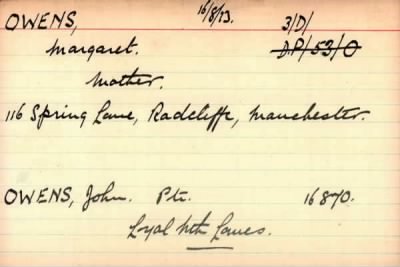 16/8/23.
OWENS, 3/D/
Margaret. D.P/53/O
Mother.
116 Spring Lane, Radcliffe, Manchester.
OWENS, John. Pte. 16870.
Loyal Nth Lancs.